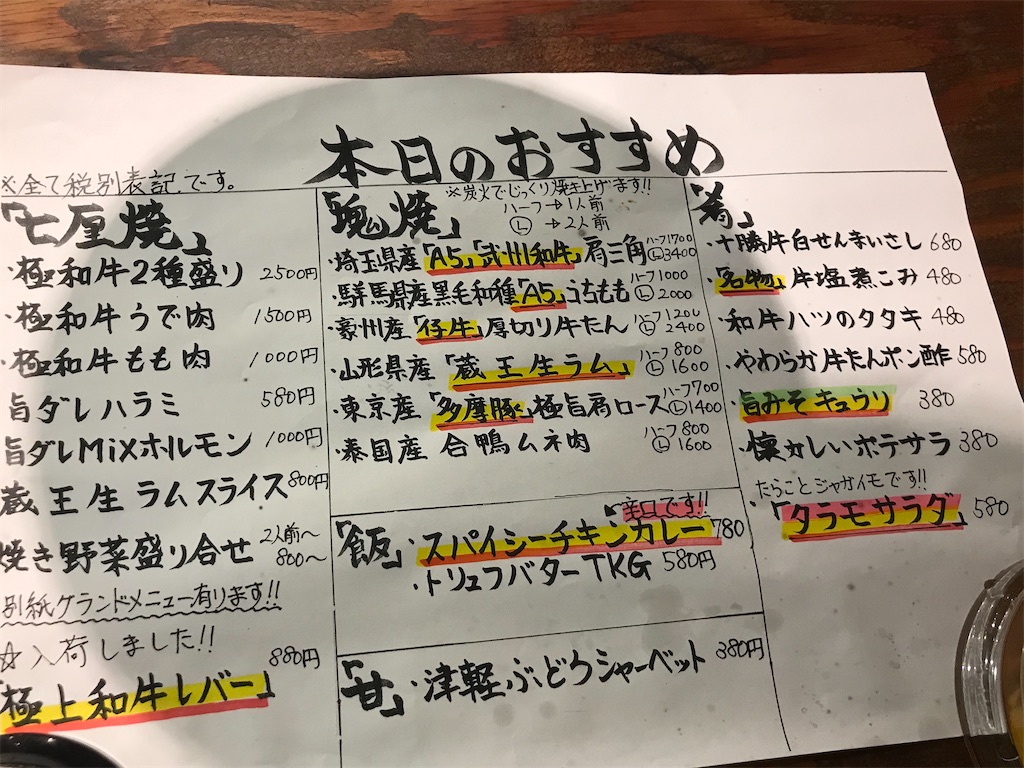 本日のおすすめ
※全て税別表記です。
「七厘焼」
・極和牛2種盛り 2500円
・極和牛うで肉 1500円
・極和牛もも肉 1000円
旨ダレハラミ 580円
旨ダレMiXホルモン 1000円
蔵王生ラムスライス 800円
焼き野菜盛り合せ 2人前〜 800〜
別紙グランドメニュー有ります!!
☆入荷しました!!
「極上和牛レバー」 880円
「塊焼」
※炭火でじっくり焼き上げます!!
ハーフ→1人前
Ⓛ→2人前
・埼玉県産「A5」武州和牛」肩三角 ハーフ1700 Ⓛ3400
・群馬県産黒毛和種「A5」うちもも ハーフ1000 Ⓛ2000
・豪州産「仔牛」厚切り牛たん ハーフ1200 Ⓛ2400
・山形県産「蔵王生ラム」 ハーフ800 Ⓛ1600
・東京産「多摩豚」極旨肩ロース ハーフ700 Ⓛ1400
・泰国産 合鴨ムネ肉 ハーフ800 Ⓛ1600
「飯」
辛口です!!
・スパイシーチキンカレー 780
・トリュフバターTKG 580円
「甘」
・津軽ぶどうシャーベット 380円
「肴」
・十勝牛白せんまいさし 680
・「名物」牛塩煮こみ 480
・和牛ハツのタタキ 480
・やわらか牛たんポン酢 580
・旨みそキュウリ 380
・懐かしいポテサラ 380
たらことジャガイモです!!
・「タラモサラダ」 580